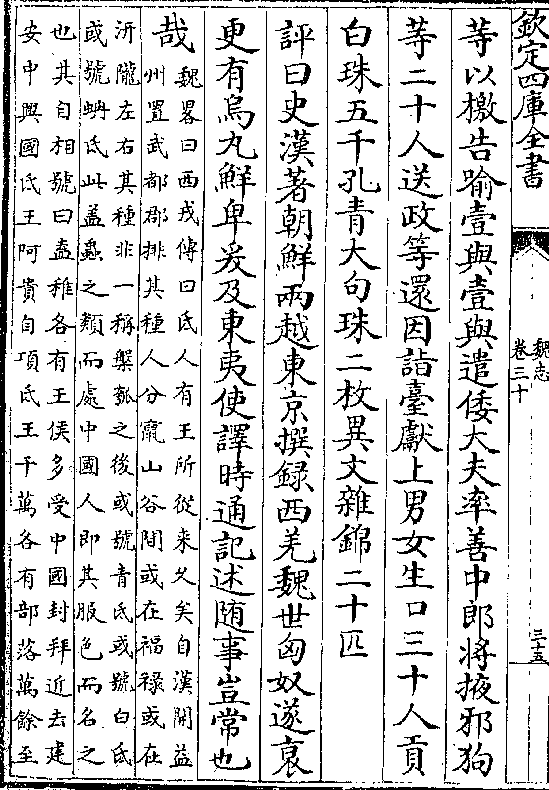 欽定四庫全書
魏志
卷三十
三十五
等以檄告喻壹與壹與遣倭大夫率善中郎將掖邪狗
等二十人送政等還因詣臺獻上男女生口三十人貢
白珠五千孔青大句珠二枚異文雜錦二十匹
評曰史漢著朝鮮兩越東京撰録西羌魏世匈奴遂衰
更有烏丸鮮卑爰及東夷使譯時通記述随事豈常也
哉
魏畧曰西戎傳曰氐人有王所從来乆矣自漢開益
州置武都郡排其種人分竄山谷間或在福禄或在
汧隴左右其種非一稱槃瓠之後或號青氐或號白氐
或號蚺氐此盖蟲之類而處中國人即其服色而名之
也其自相號曰盍稚各有王侯多受中國封拜近去建
安中興國氐王阿貴白項氐王千萬各有部落萬餘至